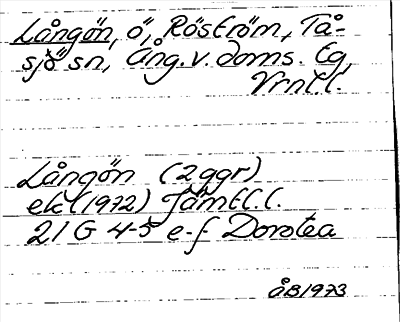 Långön, ö, Röström, Tå-
sjö sn, Ång. v. doms. tg,
Vrnl.l.
Långön (2 ggr)
ek (1972) Jämtl.l.
21 G 4-5 e-f Dorotea
ÅB1973